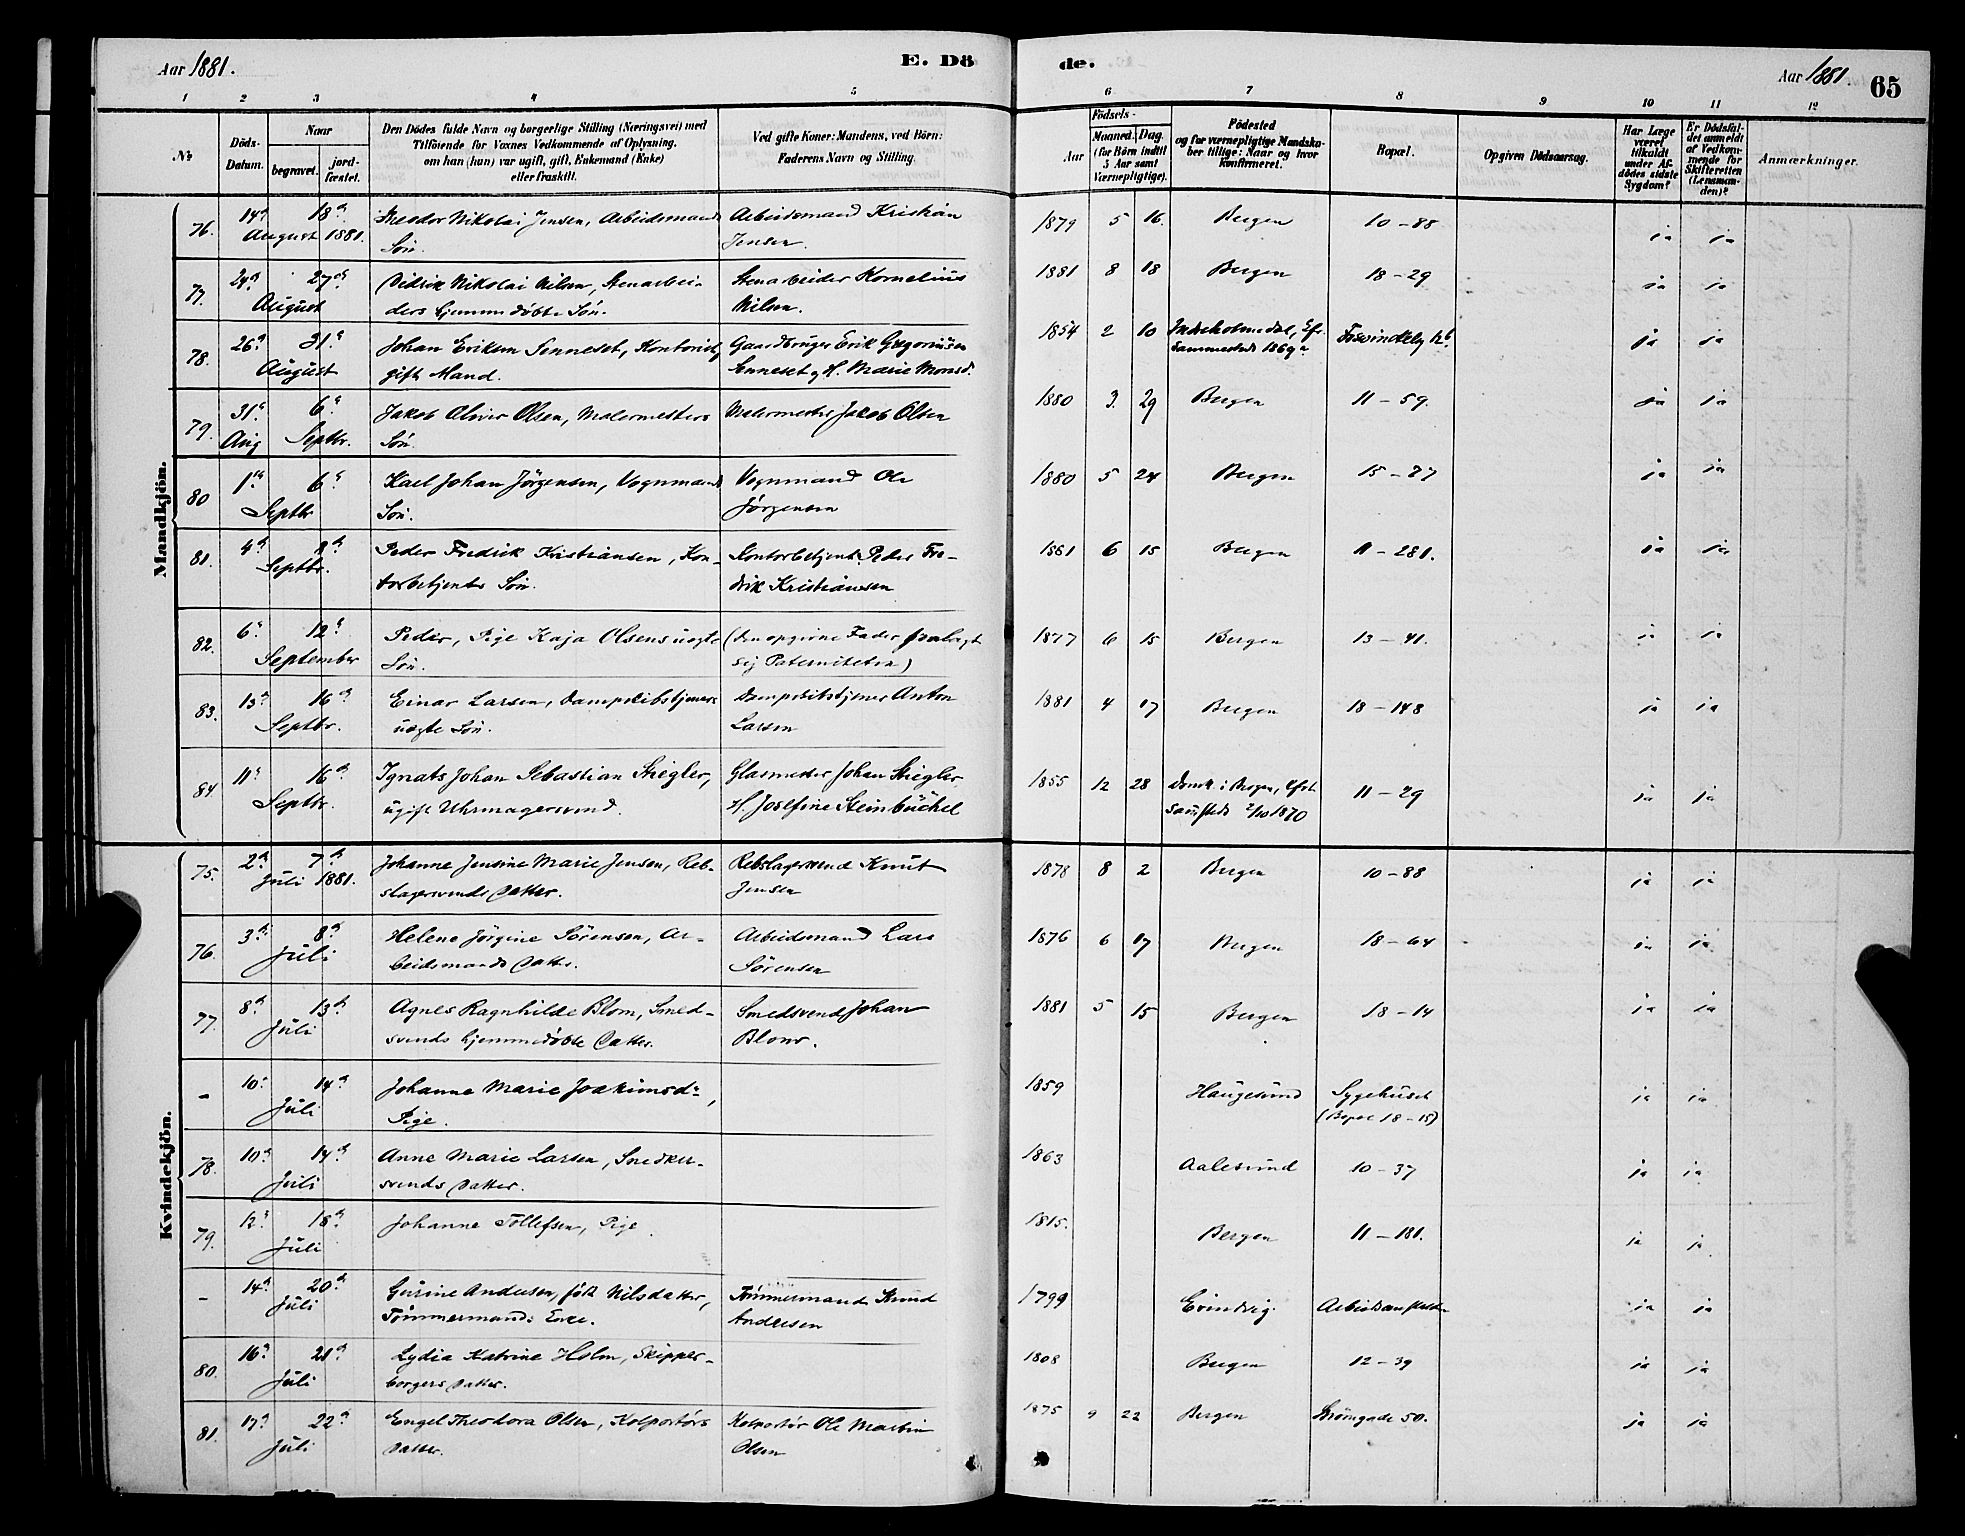 Aar 1881.
E. Dö
de.
Aar 1881.
65
1 2 3 4 5 6 7 8 9 10 11 12
No
Döds-
Datum.
Naar
begravet.
jord-
fæstet.
Den Dödes fulde Navn og borgerlige Stilling (Næringsvei) med
Tilföiende for Voxnes Vedkommende af Oplysning,
om han (hun) var ugift, gift, Enkemand (Enke)
eller fraskilt.
Ved gifte Koner: Mandens, ved Börn:
Faderens Navn og Stilling.
Födsels-
Aar
Maaned. Dag.
(for Börn indtil
5 Aar samt
Værnepligtige).
Födested
og for værnepligtige Mandska-
ber tillige: Naar og hvor
konfirmeret.
Bopæl.
Opgiven Dödsaarsag.
Har Læge
været
tilkaldt
under Af-
dödes sidste
Sygdom?
Er Dödsfal-
det anmeldt
af Vedkom-
mende for
Skifteretten
(Lensman-
den)?
Anmærkninger.
Mandkjön.
76. 14de 18de Theodor Nikolai Jensen, Arbeidsmands Arbeidsmand Kristian 1879 5 16. Bergen 10-88 ja ja
August 1881. Sön. Jensen.
77. 24de 27de Didrik Nikolai Nilsen, Stenarbei- Stenarbeider Kornelius 1881 8 18 Bergen 18-29 ja ja
August ders hjemmedöbte Sön. Nilsen.
78. 26de 31te Johan Eriksen Senneset, Kontorist, Gaardbruger Erik Gregoriusen 1854 2 10 ja ja
August gift Mand. Marie Monsd. 1869
79. 31te 6te Jakob Oliver Olsen, Malermesters Malermester Jakob Olsen 1880 3. 29 Bergen 11-59. ja ja
Aug Septbr. Sön.
80 1ste 6te Karl Johan Jörgensen, Vognmands Vognmand Ole 1880 5 24 Bergen 15-27 ja ja
Septbr Sön. Jörgensen
81. 4de Peder Fredrik Kristiansen, Kon- Kontorbetjent Peder Fre- 1881 6 15 Bergen 11-281. ja ja
Septbr. torbetjents Sön. drik Kristiansen
82. 6te 12te Peder, Pige Kaja Olsens uægte (den opgivne Fader fralagt 1877 6 15 Bergen 13-41. ja ja
September Sön. sig Paterniteten)
83. 13de 16de Einar Larsen, Dampskibstjeners Dampskibstjener Anton 1881 4 17 Bergen 18-148 ja ja
Septbr. uægte Sön. Larsen
84 11te 16de Ignats Johan Sebastian Stiegler, Glasmester Johan Stiegler 1855 12 28 Domk. i Bergen, 11-29 ja ja
Septbr. ugift Uhrmagersvend. H. Josefine Steinbüchel 2/10 1870
Kvindekjön.
75. 2den 7de Johanne Jensine Marie Jensen, Reb- Rebslagersvend Knut 1878 8 2 Bergen 10-88 ja ja
Juli 1881. slagersvends Datter. Jensen
76. 3die 8de Helene Jörgine Sörensen, Ar- Arbeidsmand Lars 1876 6 17 Bergen 18-64 ja ja
Juli beidsmands Datter. Sörensen
77. 8de 13de Agnes Ragnhilde Blom, Smed- Smedsvend Johan 1881 5 15 Bergen 18-14 ja ja
Juli svends hjemmedöbte Datter. Blom.
- 10de 14de Johanne Marie Joakimsdr, 1859 Haugesund Sygehuset ja ja
Juli Pige. (Bopæl 18-15)
78. 10de 14de Anne Marie Larsen, Snedker- 1863 Aalesund 10-37 ja ja
Juli svends Datter.
79. 12te 18de Johanne Tollefsen, Pige. 1815. Bergen 11-181. ja ja
Juli
- 14de 20de Gurine Andersen, född Nilsdatter, Tömmermand Knud 1799 Eivindvig. Arbeidsanstalten ja ja
Juli Tömmermands Enke. Andresen
80. 16de 21de Lydia Katrine Holm, Skipper- 1808 Bergen 12-39 ja ja
Juli borgers Datter.
81. 17de 22de Engel Theodora Olsen, Kolportörs Kolportör Ole Martin 1875 9 22 Bergen Strömgade 50. ja ja
Juli Datter. Olsen